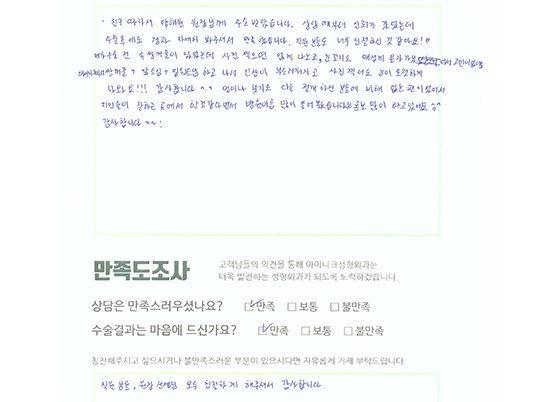 · 친구 따라서 양해원 원장님께 수술 받았습니다. 상담 때부터 신뢰가 갔었는데
수술후에도 경과 자세히 봐주셔서 만족합니다. 직원분들도 너무 친절하신 것 같아요!
제가 수술 전 속쌍꺼풀이 있었는데 사진 찍으면 있게 나오고, 눈꼬리도
쌍꺼풀 + 앞트임 + 밑트임 하고 나서 인상이 부드러워지고 사진 찍어도 눈이 또렷하게
나와요!!! 감사합니다 ^^ 멍이나 붓기도 다들 절개하신 분들에 비해 없는 편이었어서
지인들이 잘하는 곳에서 한것같다면서 병원이름 많이 물어봤습니다! 홍보 많이 하고있어요 ^^
감사합니다 ~~!
만족도조사
고객님들의 의견을 통해 아이니크성형외과는
더욱 발전하는 성형외과가 되도록 노력하겠습니다.
상담은 만족스러우셨나요? ☑만족 □보통 □불만족
수술결과는 마음에 드신가요? ☑만족 □보통 □불만족
칭찬해주시고 싶으시거나 불만족스러운 부분이 있으시다면 자유롭게 기재 부탁드립니다.
직원 분들, 원장 선생님 모두 친절하게 해주셔서 감사합니다.